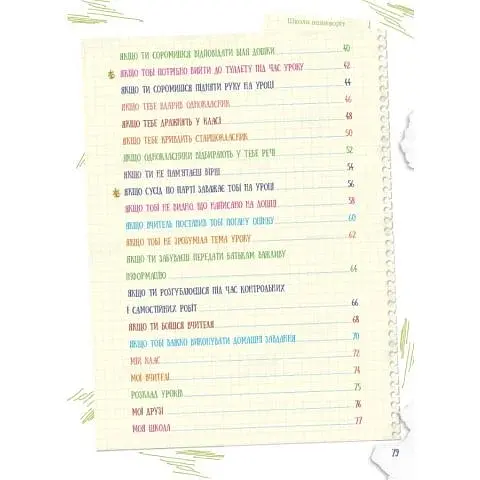 Школа навиворіт
ЯКЩО ТИ СОРОМИШСЯ ВІДПОВІДАТИ БІЛЯ ДОШКИ 40
ЯКЩО ТОБІ ПОТРІБНО ВИЙТИ ДО ТУАЛЕТУ ПІД ЧАС УРОКУ 42
ЯКЩО ТИ СОРОМИШСЯ ПІДНЯТИ РУКУ НА УРОЦІ 44
ЯКЩО ТЕБЕ ВДАРИВ ОДНОКЛАСНИК 46
ЯКЩО ТЕБЕ ДРАЖНЯТЬ У КЛАСІ 48
ЯКЩО ТЕБЕ КРИВДИТЬ СТАРШОКЛАСНИК 50
ЯКЩО ОДНОКЛАСНИКИ ВІДБИРАЮТЬ У ТЕБЕ РЕЧІ 52
ЯКЩО ТИ НЕ ПАМ'ЯТАЄШ ВІРШ 54
ЯКЩО СУСІД ПО ПАРТІ ЗАВАЖАЄ ТОБІ НА УРОЦІ 56
ЯКЩО ТОБІ НЕ ВИДНО, ЩО НАПИСАНО НА ДОШЦІ 58
ЯКЩО ВЧИТЕЛЬ ПОСТАВИВ ТОБІ ПОГАНУ ОЦІНКУ 60
ЯКЩО ТОБІ НЕ ЗРОЗУМІЛА ТЕМА УРОКУ 62
ЯКЩО ТИ ЗАБУВАЄШ ПЕРЕДАТИ БАТЬКАМ ВАЖЛИВУ
ІНФОРМАЦІЮ 64
ЯКЩО ТИ РОЗГУБЛЮЄШСЯ ПІД ЧАС КОНТРОЛЬНИХ
І САМОСТІЙНИХ РОБІТ 66
ЯКЩО ТИ БОЇШСЯ ВЧИТЕЛЯ 68
ЯКЩО ТОБІ ВАЖКО ВИКОНУВАТИ ДОМАШНІ ЗАВДАННЯ 70
МІЙ КЛАС 72
МОЇ ВЧИТЕЛІ 74
РОЗКЛАД УРОКІВ 75
МОЇ ДРУЗІ 76
МОЯ ШКОЛА 77
79